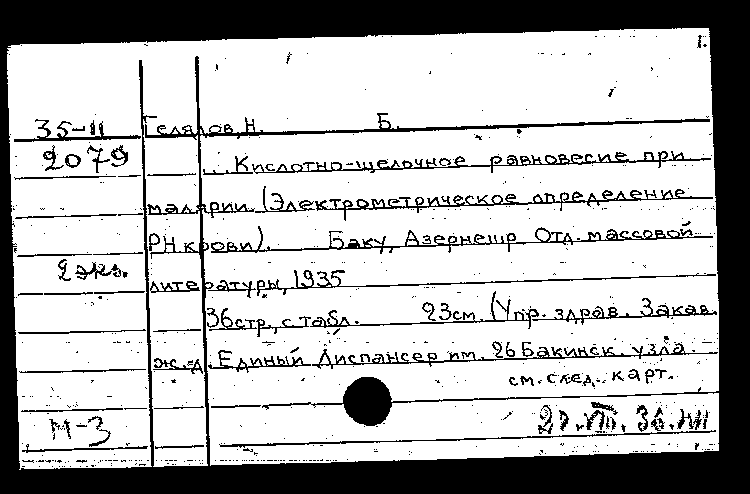 1.
35-11 Гелялов, Н. Б.
2079 ...Кислотно-щелочное равновесие при
малярии (Электрометрическое определение
РН крови). Баку, Азернешр Отд. массовой
2 экз. литературы, 1935
36 стр., с табл. 23 см. (Упр. здрав. Закав.
ж.-д. Единый Диспансер им. 26 Бакинск. узла
см. след. карт.
М-3 VIII. 36.